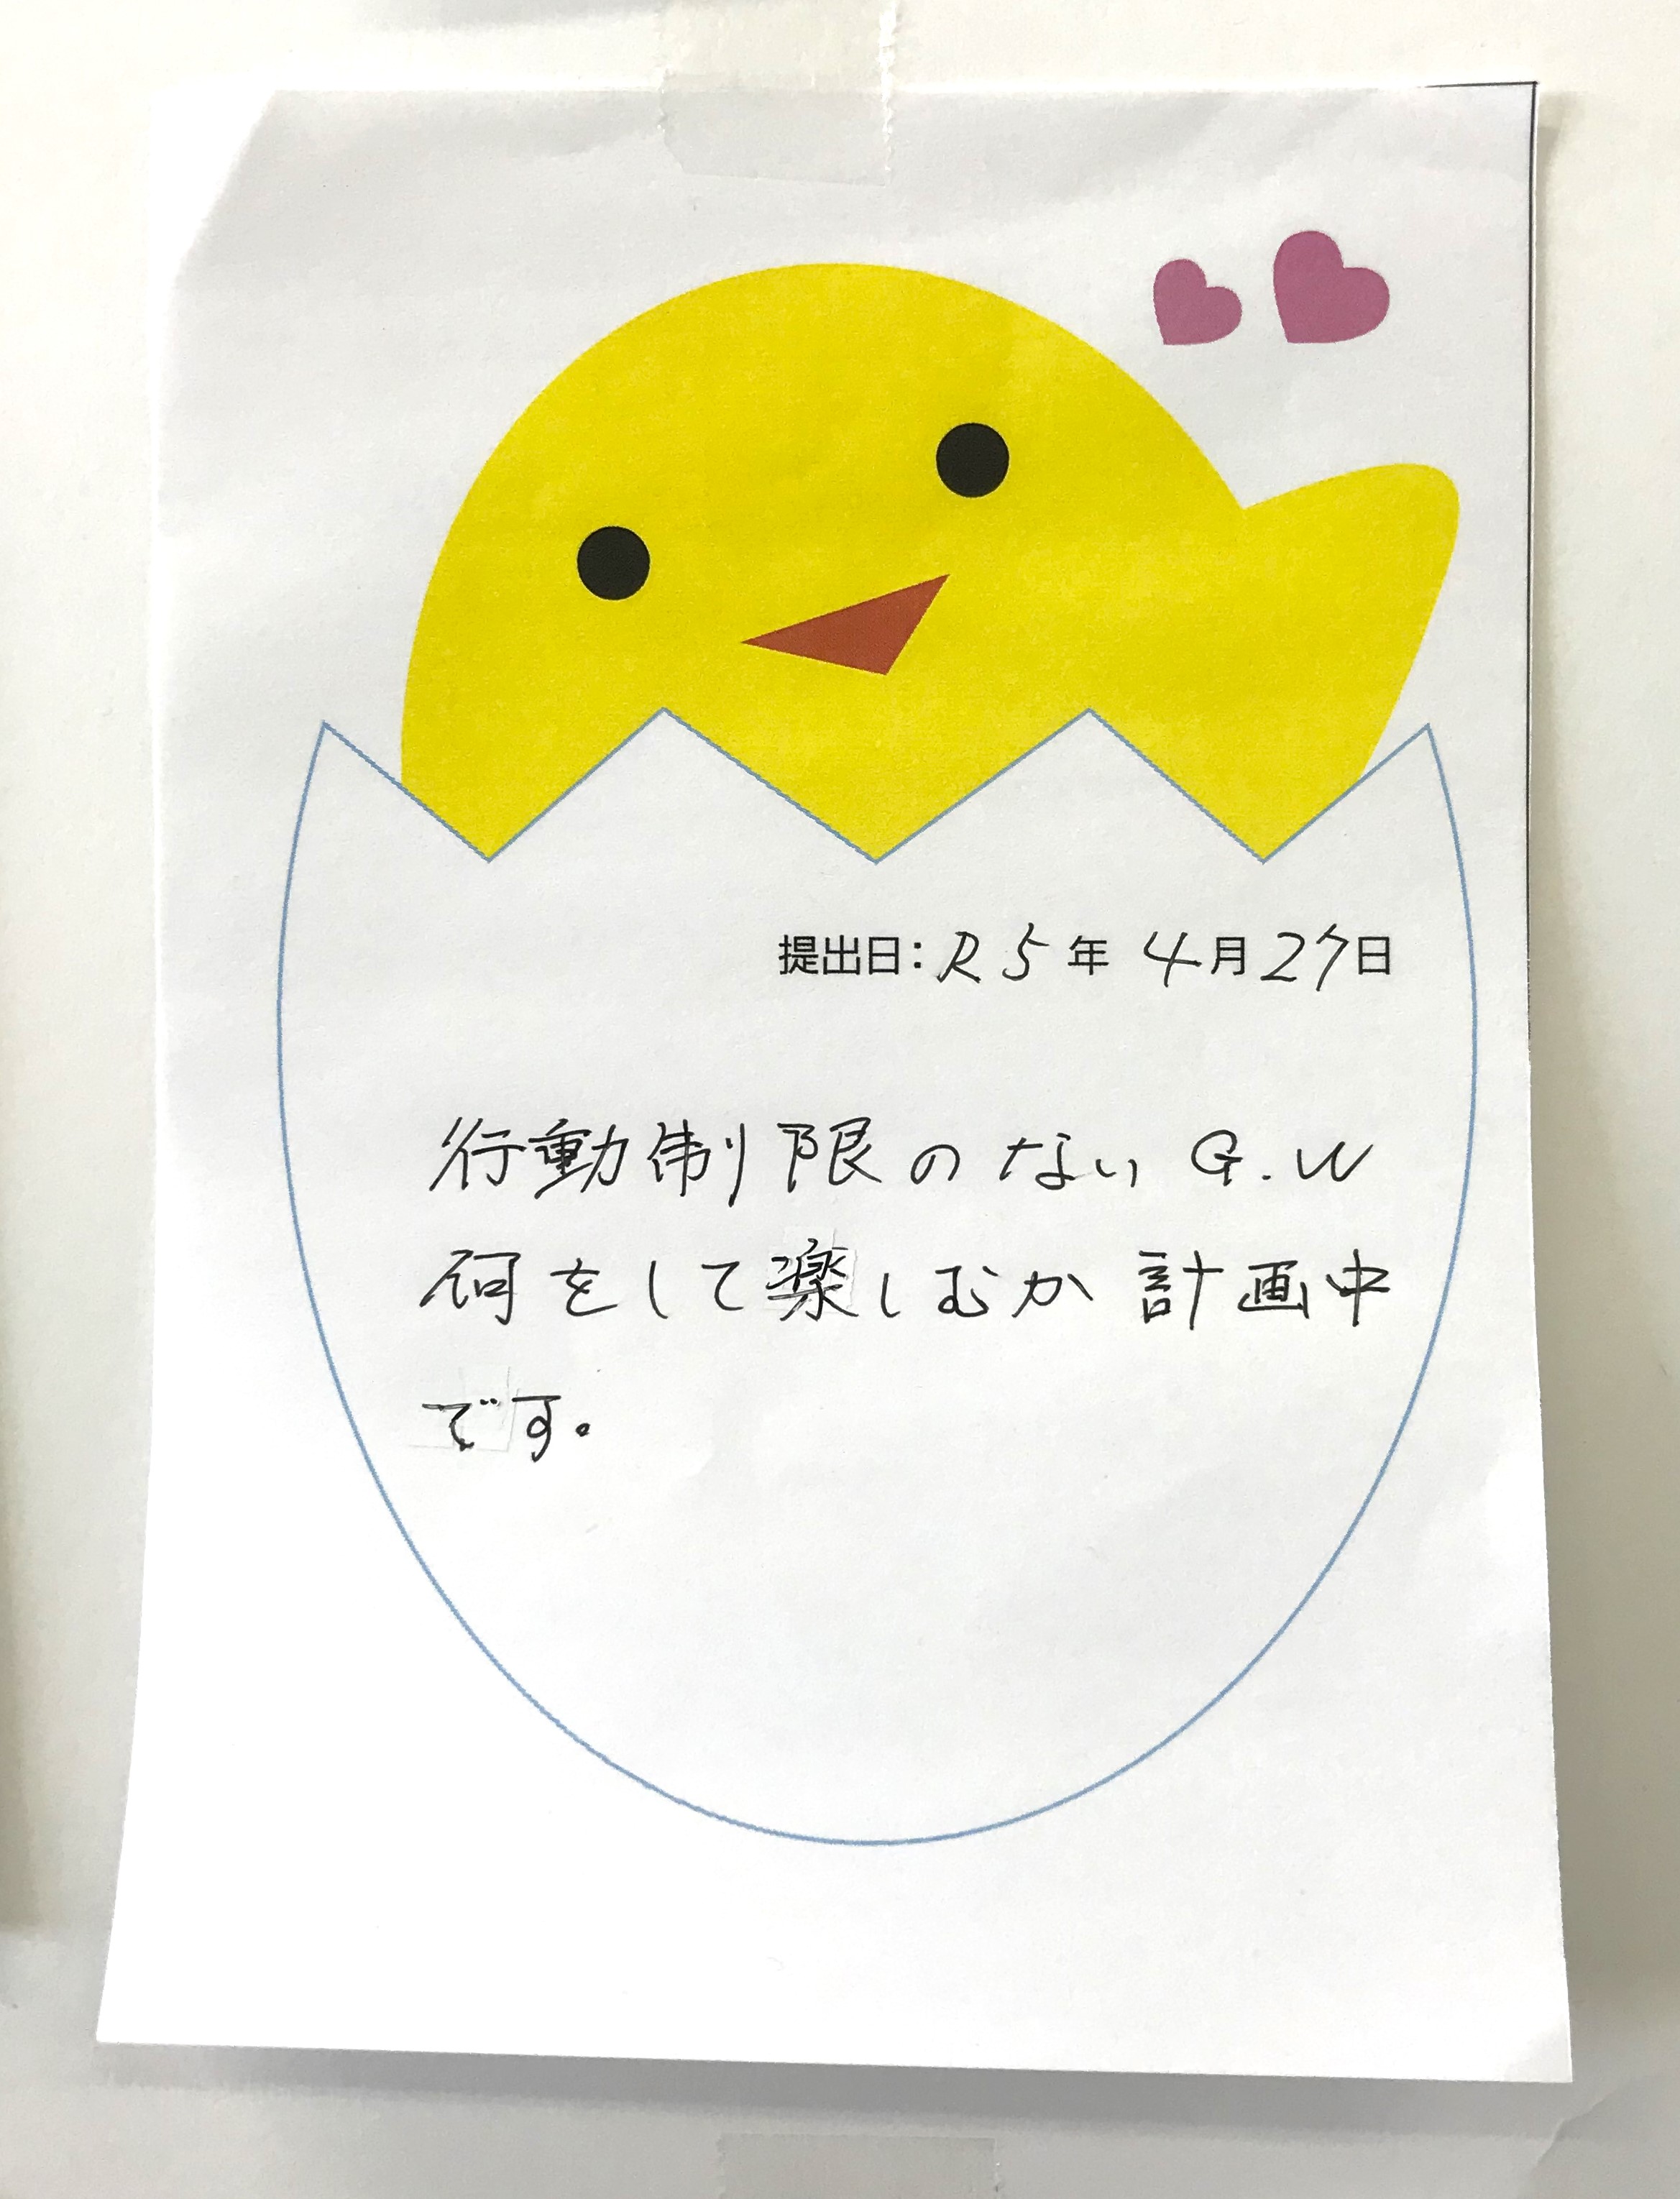 提出日：R5年 4月27日
行動制限のない G.W
何をして楽しむか 計画中
です。